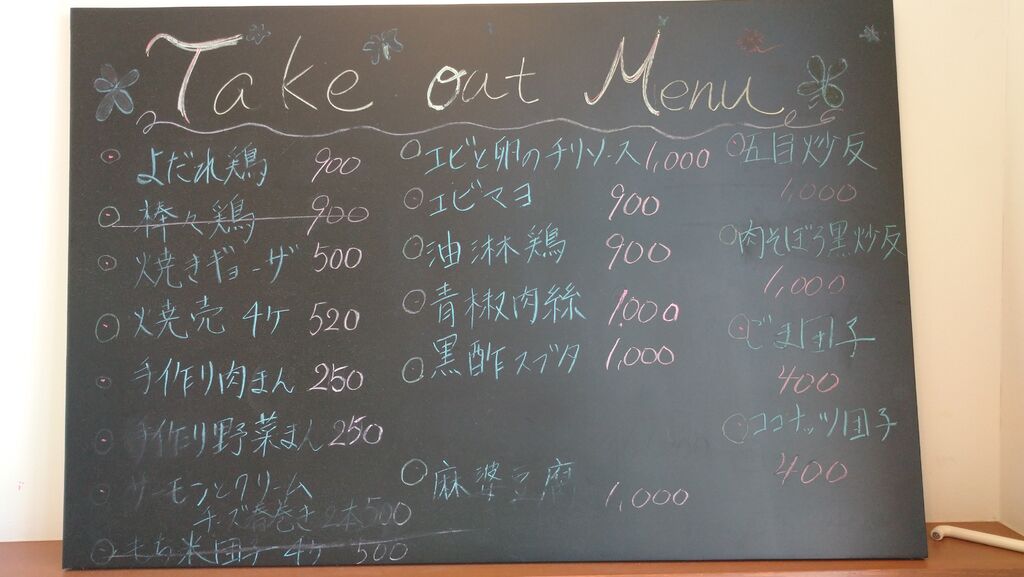 Take out Menu
よだれ鶏 900
棒々鶏 900
焼きギョーザ 500
焼売 4ケ 520
手作り肉まん 250
手作り野菜まん 250
サーモンとクリーム
チーズ春巻き 2本 500
もち米団子 4ケ 500
エビと卵のチリソース 1,000
エビマヨ 900
油淋鶏 900
青椒肉絲 1,000
黒酢スブタ 1,000
麻婆豆腐 1,000
五目炒反
1,000
肉そぼろ黒炒反
1,000
ごま団子
400
ココナッツ団子
400